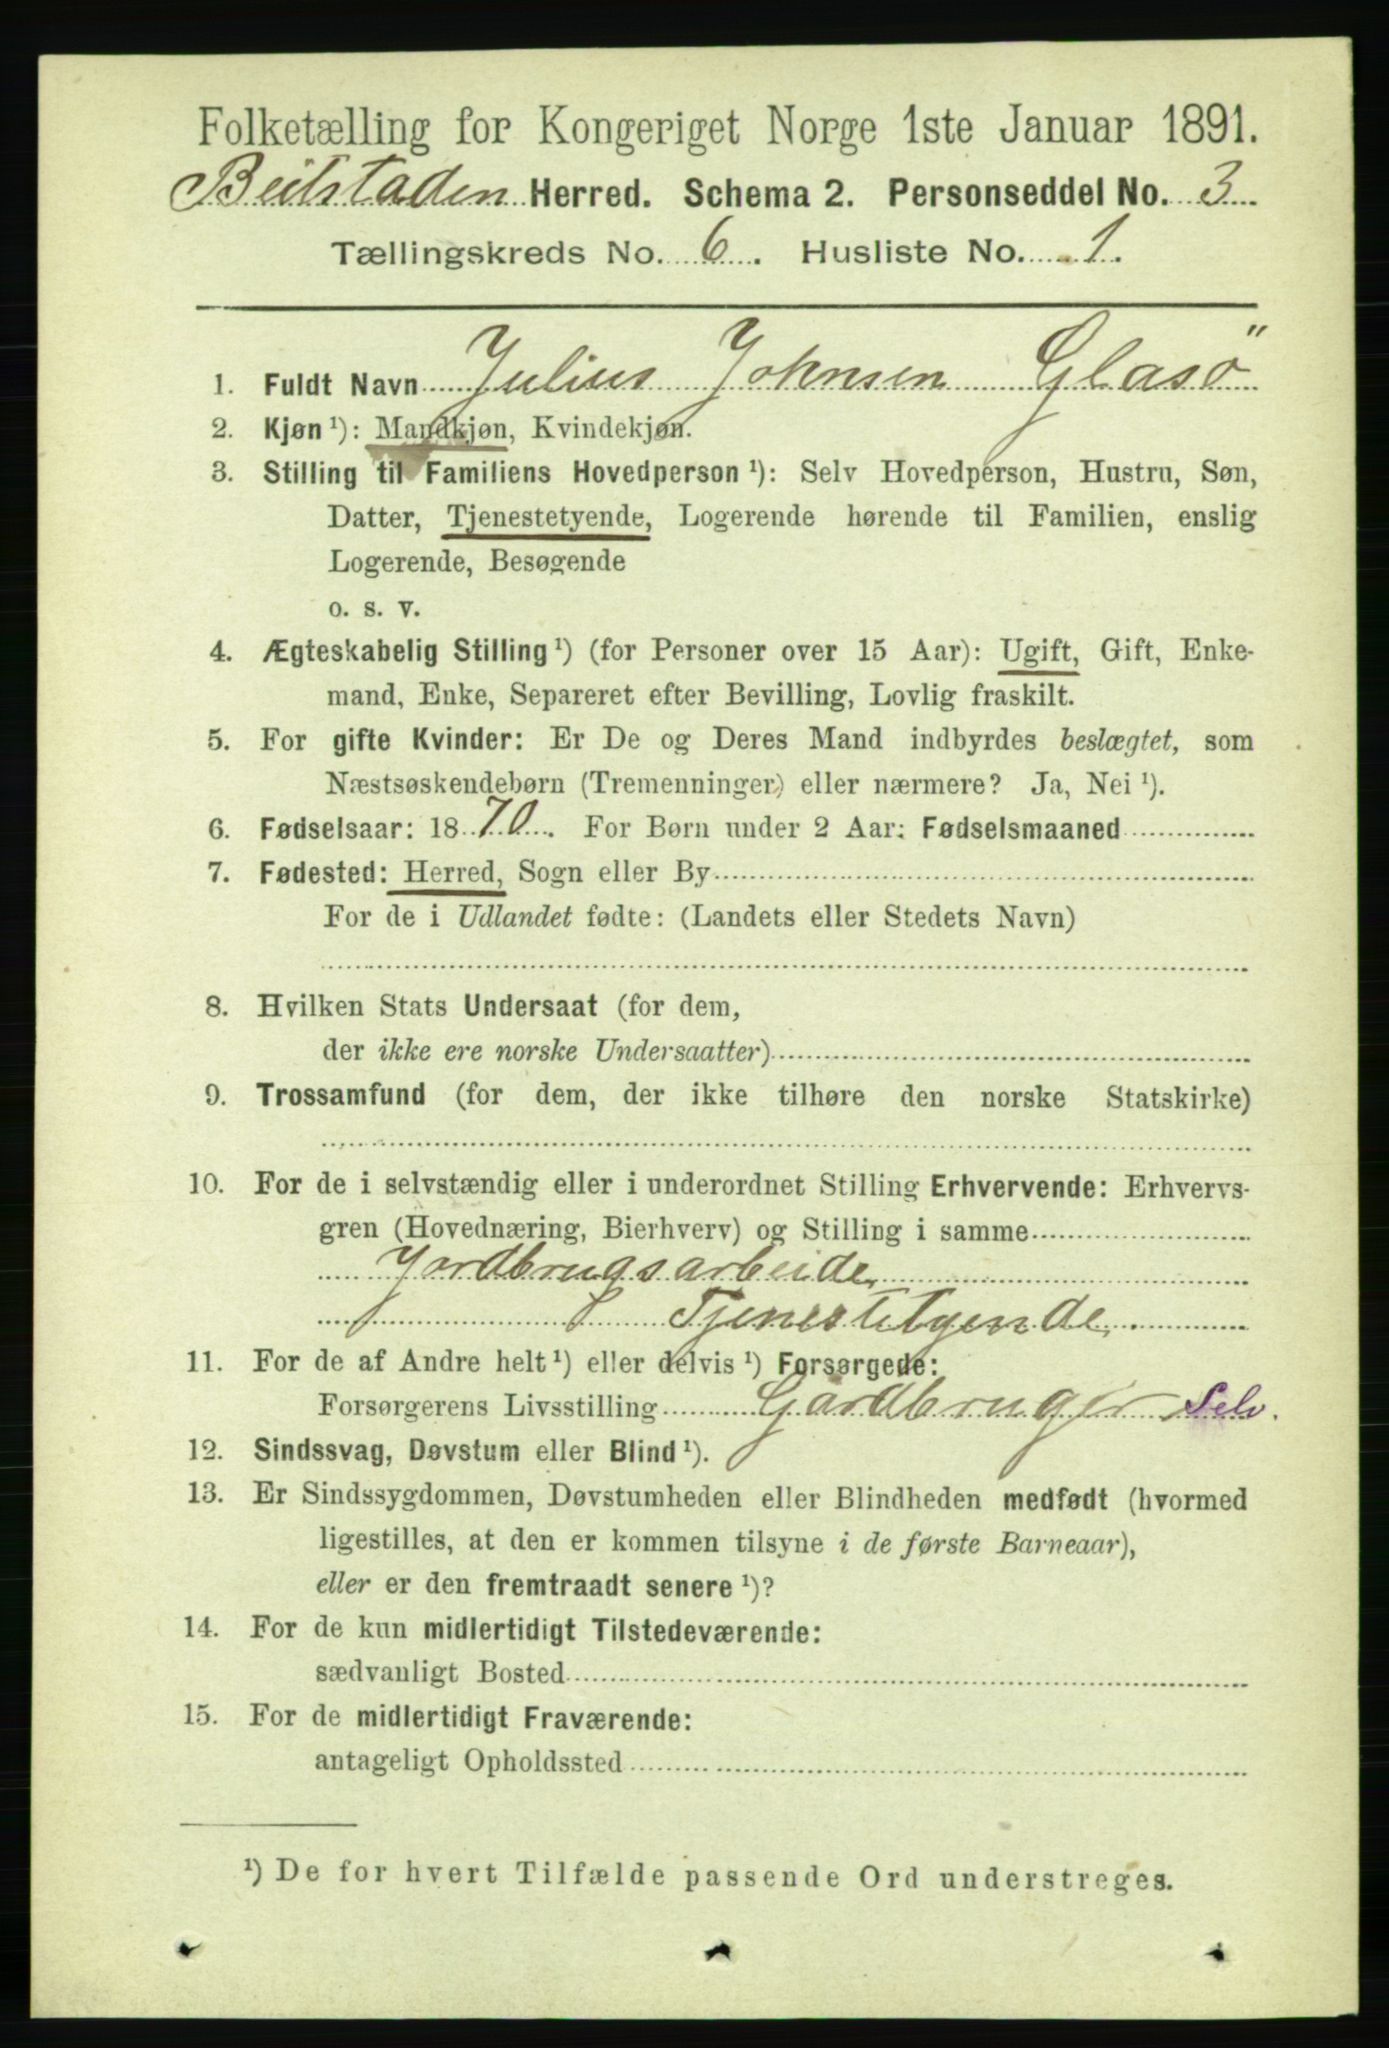 Folketælling for Kongeriget Norge 1ste Januar 1891.
Beitstaden Herred. Schema 2. Personseddel No. 3
Tællingskreds No. 6. Husliste No. 1.
1. Fuldt Navn Julius Johnsen Glasö
2. Kjøn ¹): Mandkjøn, Kvindekjøn.
3. Stilling til Familiens Hovedperson ¹): Selv Hovedperson, Hustru, Søn,
Datter, Tjenestetyende, Logerende hørende til Familien, enslig
Logerende, Besøgende
o. s. v.
4. Ægteskabelig Stilling ¹) (for Personer over 15 Aar): Ugift, Gift, Enke-
mand, Enke, Separeret efter Bevilling, Lovlig fraskilt.
5. For gifte Kvinder: Er De og Deres Mand indbyrdes beslægtet, som
Næstsøskendebørn (Tremenninger) eller nærmere? Ja, Nei ¹).
6. Fødselsaar: 1870. For Børn under 2 Aar: Fødselsmaaned
7. Fødested: Herred, Sogn eller By
For de i Udlandet fødte: (Landets eller Stedets Navn)
8. Hvilken Stats Undersaat (for dem,
der ikke ere norske Undersaatter)
9. Trossamfund (for dem, der ikke tilhøre den norske Statskirke)
10. For de i selvstændig eller i underordnet Stilling Erhvervende: Erhvervs-
gren (Hovednæring, Bierhverv) og Stilling i samme
Jordbrugsarbeide
Tjenestetyende.
11. For de af Andre helt ¹) eller delvis ¹) Forsørgede:
Forsørgerens Livsstilling Gårdbruger Selv.
12. Sindssvag, Døvstum eller Blind ¹).
13. Er Sindssygdommen, Døvstumheden eller Blindheden medfødt (hvormed
ligestilles, at den er kommen tilsyne i de første Barneaar),
eller er den fremtraadt senere ¹)?
14. For de kun midlertidigt Tilstedeværende:
sædvanligt Bosted
15. For de midlertidigt Fraværende:
antageligt Opholdssted
¹) De for hvert Tilfælde passende Ord understreges.